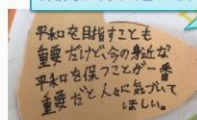 平和を目指すことも
重要だけど、今の身近な
平和を保つことが一番
重要だと人々に気づいて
ほしい。